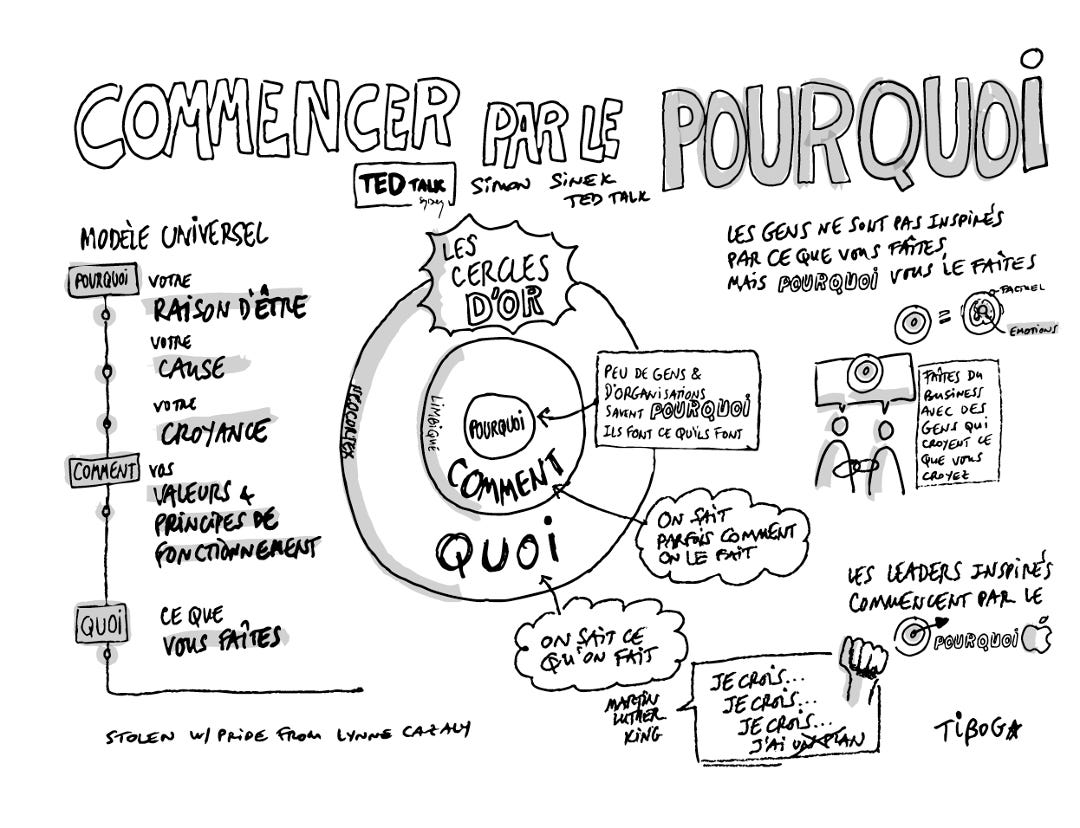 COMMENCER PAR LE POURQUOI
TED TALK
SIMON SINEK
TED TALK
MODÈLE UNIVERSEL
POURQUOI
VOTRE
RAISON D'ÊTRE
VOTRE
CAUSE
VOTRE
CROYANCE
COMMENT
VOS
VALEURS &
PRINCIPES DE
FONCTIONNEMENT
QUOI
CE QUE
VOUS FAÎTES
LES
CERCLES
D'OR
NEOCORTEX
LIMBIQUE
POURQUOI
COMMENT
QUOI
PEU DE GENS &
D'ORGANISATIONS
SAVENT POURQUOI
ILS FONT CE QU'ILS FONT
ON SAIT
PARFOIS COMMENT
ON LE FAIT
ON SAIT CE
QU'ON FAIT
LES GENS NE SONT PAS INSPIRÉS
PAR CE QUE VOUS FAÎTES,
MAIS POURQUOI VOUS LE FAÎTES
=
FACTUEL
EMOTIONS
FAÎTES DU
BUSINESS
AVEC DES
GENS QUI
CROYENT CE
QUE VOUS
CROYEZ
LES LEADERS INSPIRÉS
COMMENCENT PAR LE
POURQUOI
MARTIN
LUTHER
KING
JE CROIS...
JE CROIS...
JE CROIS...
J'AI UN PLAN
STOLEN W/ PRIDE FROM LYNNE CAZALY
TIBOGA